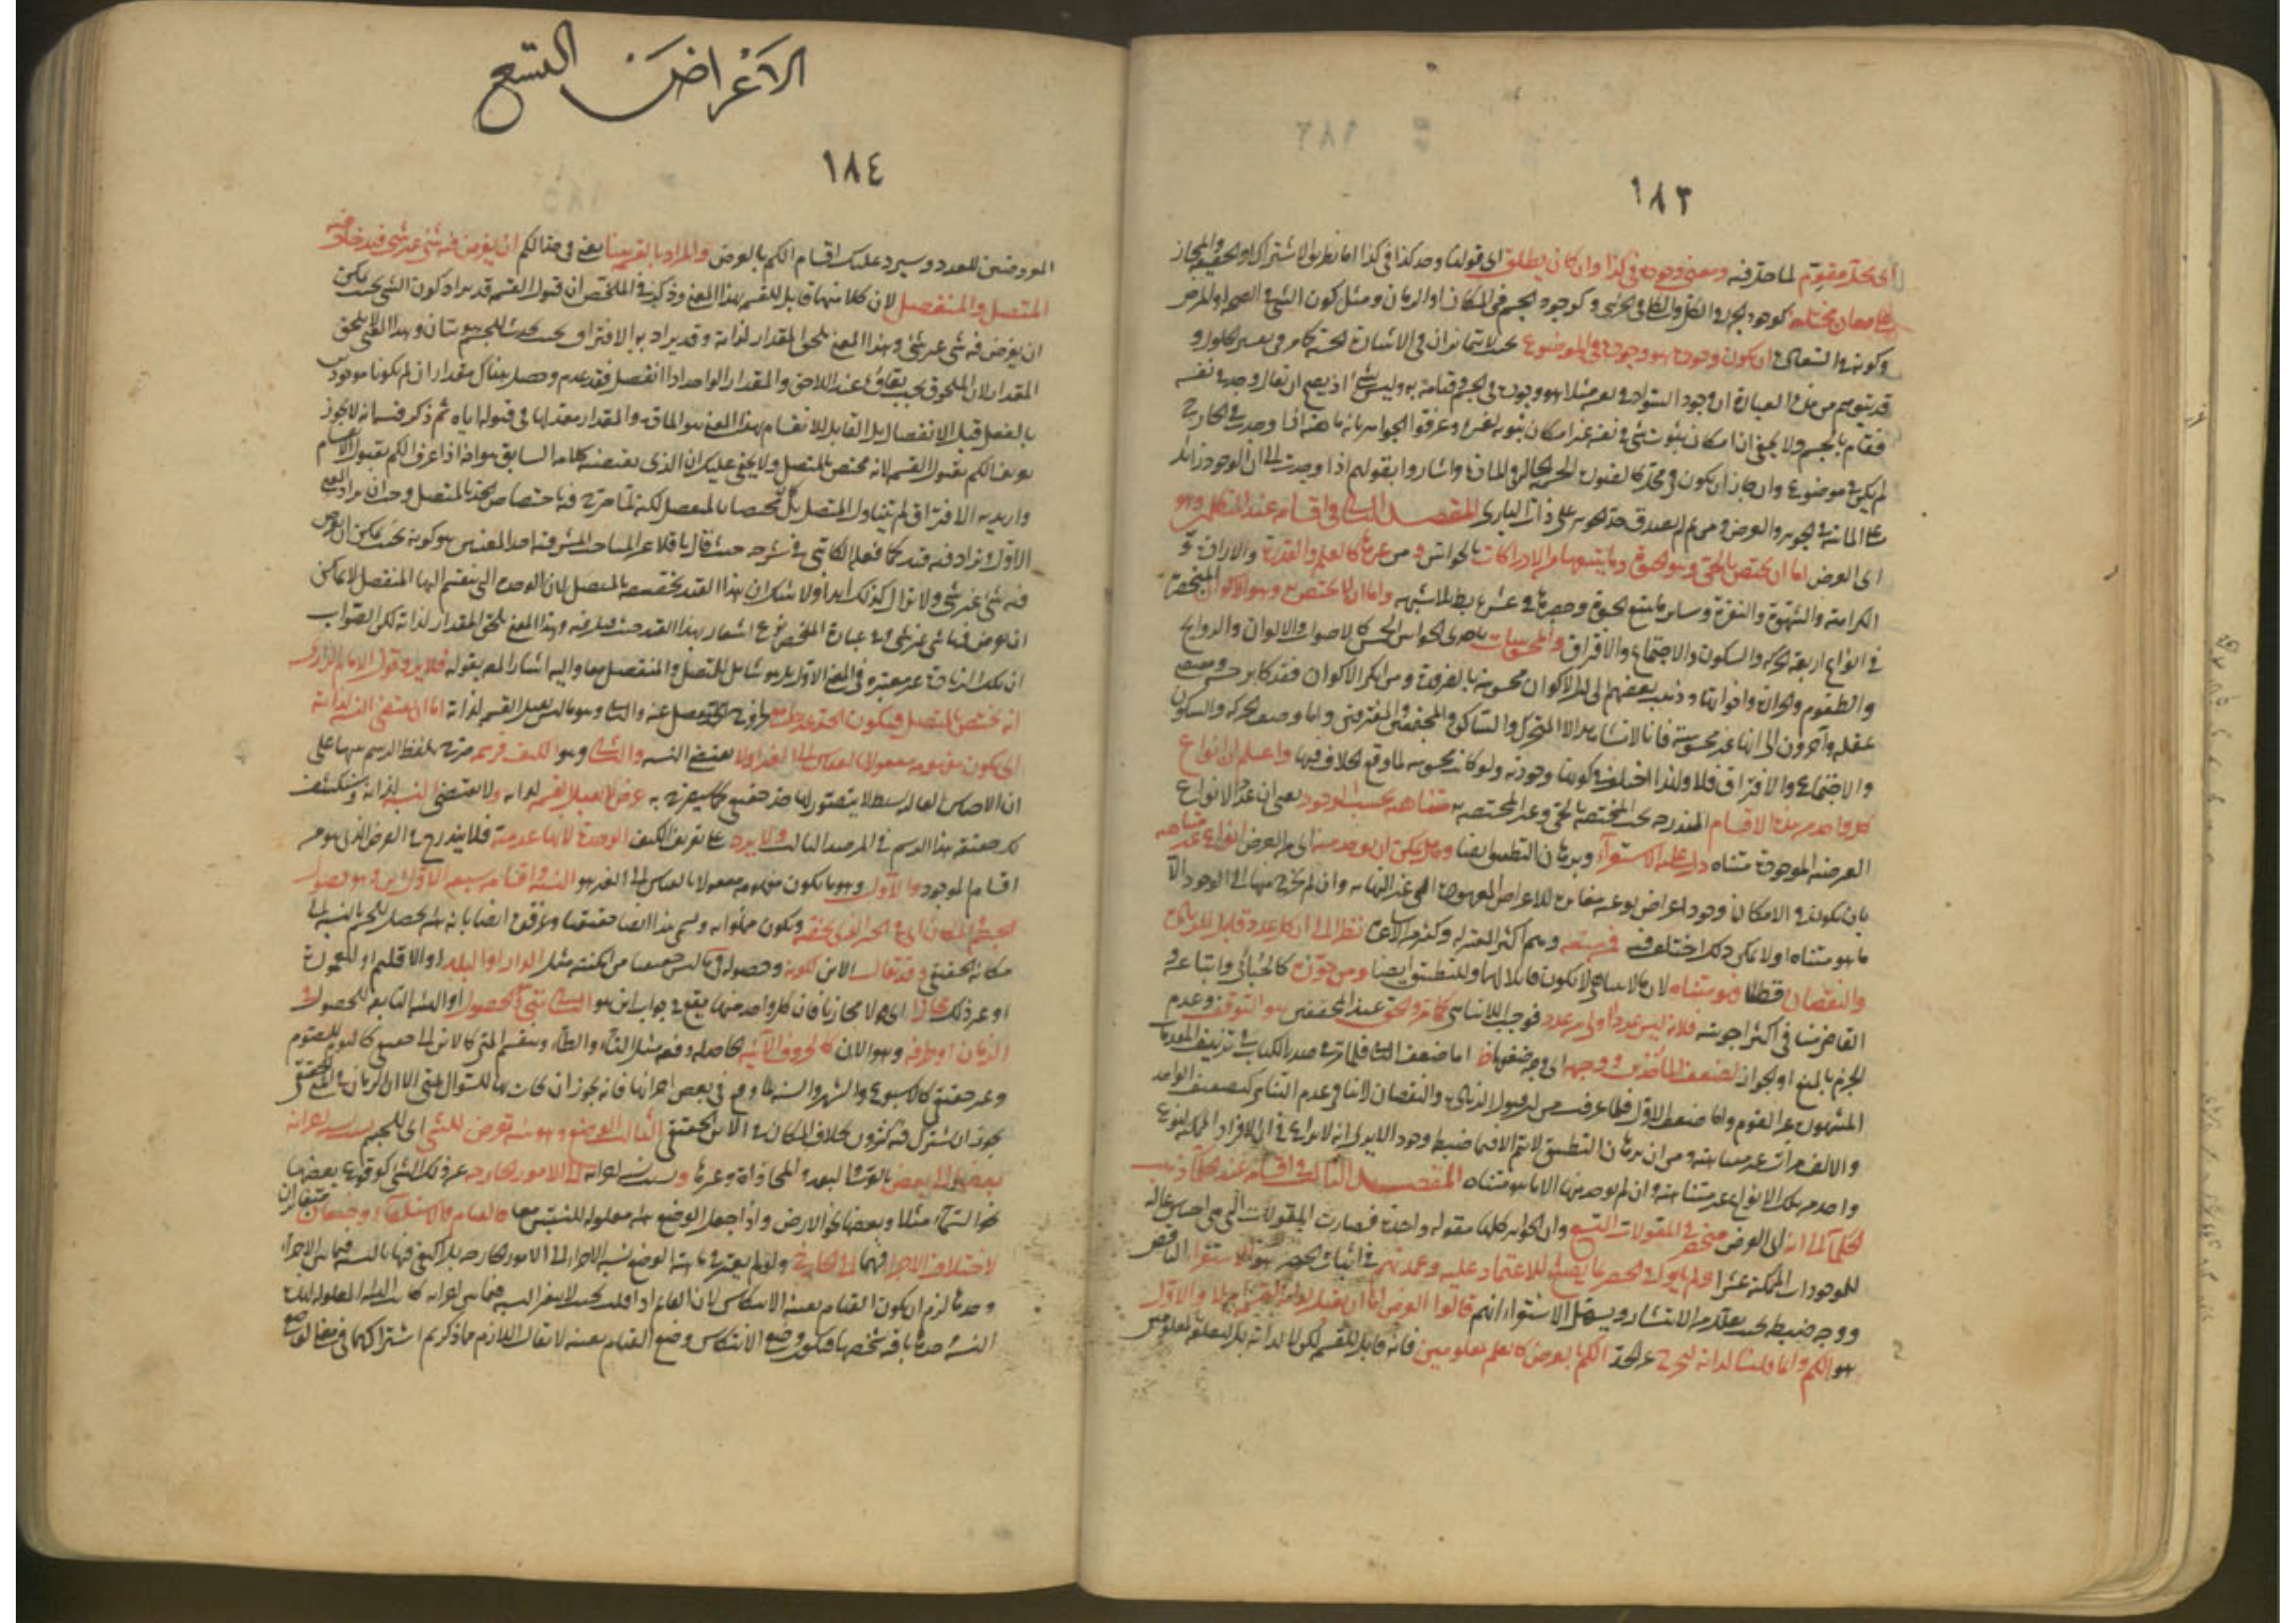 ١٨٣
اى محل مقوم لما حل فيه ومعنى وجوده فى كذا وان كان يطلق اى قولنا وجد كذا فى كذا اما بطريق الاشتراك او الحقيقة والمجاز
على معان مختلفة كوجود الجزء فى الكل والكلى فى الجزئى وكوجود الجسم فى المكان او الزمان ومثل كون الشئ فى الصحة او المرض
وكونه فى السعادة ان يكون وجوده هو وجوده فى الموضوع بحيث لا يتمايزان فى الاشارة الحسية كما مر فى تفسير الحلول و
قد يتوهم من هذه العبارة ان وجود السواد فى نفسه مثلا هو وجوده فى الجسم وقيامه به وليس بشئ اذ يصح ان يقال وجد فى نفسه
فقام بالجسم ولا يخفى ان امكان ثبوت شئ فى نفسه غير امكان ثبوته لغيره وعرفوا الجوهر بانه ماهية اذا وجدت فى الخارج
لم يكن فى موضوع وان جاز ان يكون فى محل كالصورة الجسمية الحالة فى المادة واشاروا بقولهم اذا وجدت الى ان الوجود زائد
على الماهية فى الجوهر والعرض ومن ثم لم يصدق حد الجوهر على ذات البارى المقصد الثانى فى اقسامه عند المتكلمين وهو
اى العرض اما ان يختص بالحى وهو الحيوة وما يتبعها من الادراكات بالحواس ومن غيرها كالعلم والقدرة والارادة و
الكراهة والشهوة والنفرة وسائر ما يتبع الحيوة وحصرها فى عشرة باطل بلا شبهة واما ان لا يختص به وهو الاكوان المنحصرة
فى انواع اربعة الحركة والسكون والاجتماع والافتراق والمحسوسات باحدى الحواس الخمس كالاصوات والالوان والروايح
والطعوم والحرارة واخواتها وذهب بعضهم الى ان الاكوان محسوسة بالضرورة ومن انكر الاكوان فقد كابر حسه ومقتضى
عقله وآخرون الى انها غير محسوسة فانا لا نشاهد الا المتحرك والساكن والمجتمعين والمفترقين واما وصف الحركة والسكون
والاجتماع والافتراق فلا ولهذا اختلف فى كونها وجودية ولو كانت محسوسة لما وقع الخلاف فيها واعلم ان انواع
كل واحد من هذه الاقسام المندرجة تحت المختصة بالحى وغير المختصة به متناهية بحسب الوجود يعنى ان عدد الانواع
العرضية الموجودة متناه دل عليه الاستقراء وبرهان التطبيق ايضا وهل يمكن ان يوجد منه اى من العرض انواع غير متناهية
بان يكون فى الامكان وجود اعراض نوعية مغايرة للاعراض المعهودة الى غير النهاية وان لم يخرج منها الى الوجود الا
ما هو متناه او لا يمكن ذلك اختلف فيه فمنعه وهم اكثر المعتزلة وكثير من الاشاعرة نظر الى ان كل عدد قابل للزيادة
والنقصان قطعا فهو متناه لان ما لا يتناهى لا يكون قابلا لهما وللتطبيق ايضا ومن جوزه كالجبائى واتباعه و
القاضى منا فى اكثر اجوبته فلانه ليس عدد اولى من عدد فوجب اللاتناهى كما مر والحق عند المحققين هو التوقف وعدم
الجزم بالمنع او الجواز لضعف المأخذين ووجهه اى وجه ضعفهما اما ضعف الثانى فلما مر فى صدر الكتاب فى تزييف المقدمات
المشهورة عند القوم واما ضعف الاول فلما عرفت من ان قبول الزيادة والنقصان لا ينافى عدم التناهى كتضعيف الواحد
والالف مرات غير متناهية ومن ان برهان التطبيق لا يتم الا فيما ضبطه وجود
واحد من تلك الانواع غير متناهية وان لم يوجد منها الا ما هو متناه المقصد الثالث فى اقسامه عند الحكماء ذهب
الحكماء الى انه اى العرض منحصر فى المقولات التسع وان الجواهر كلها مقولة واحدة فصارت المقولات التى هى اجناس عالية
للموجودات الممكنة عشرا ولم يأتوا فى الحصر بما يصلح للاعتماد عليه وعمدتهم فى اثبات الحصر هو الاستقراء الناقص
ووجه ضبطه بحيث يقلل من الانتشار ويسهل الاستقراء انهم قالوا العرض اما ان يقبل لذاته القسمة او لا والاول
هو الكم وانما قلنا لذاته ليخرج عن الحد الكم بالعرض كالعلم بمعلومين فانه قابل للقسمة لكن لا لذاته بل لتعلقه بمعلومين
الأعراض التسع
١٨٤
المعروضين للعدد وسيرد عليك اقسام الكم بالعرض والمراد بالقسمة هنا يعنى فى حد الكم ان يفرض فيه شئ غير شئ فيدخل فيه
المتصل والمنفصل لان كلا منهما قابل للقسمة بهذا المعنى وذكر فى الملخص ان قبول القسمة قد يراد به كون الشئ بحيث يمكن
ان يفرض فيه شئ غير شئ وهذا المعنى يلحق المقدار لذاته وقد يراد به الافتراق بحيث يحدث للجسم هويتان وهذا المعنى لا يلحق
المقدار لان الملحوق يجب بقاؤه عند اللاحق والمقدار الواحد اذا انفصل فقد عدم وحصل هناك مقداران لم يكونا موجودين
بالفعل قبل الانفصال بل القابل للانقسام بهذا المعنى هو المادة والمقدار معد لها فى قبولها اياه ثم ذكر فيه انه لا يجوز
تعريف الكم بقبول القسمة لانه مختص بالمتصل ولا يخفى عليك ان الذى يقتضيه كلامه السابق هو انه اذا عرف الكم بقبول الانقسام
واريد به الافتراق لم يتناول المتصل بل كان مختصا بالمنفصل
الاول ويزاد فيه قيد كما فعله الكاتبى فى شرحه حيث قال ناقلا عن المباحث المشرقية احد المعنيين هو كونه بحيث يمكن ان يفرض
فيه شئ غير شئ ولا يزال كذلك ابدا ولا شك ان هذا القيد يخصصه بالمتصل لان الوحدة التى ينقسم اليها المنفصل لا يمكن
ان يفرض فيها شئ غير شئ وفى عبارة الملخص نوع اشعار بهذا القيد حيث قيل فيه وهذا المعنى يلحق المقدار لذاته لكن الصواب
ان تلك الزيادة غير معتبرة فى المعنى الاول بل هو شامل للمتصل والمنفصل معا واليه اشار المص بقوله فلا يرد قول الامام الرازى
انه مختص بالمتصل فيكون الحد غير جامع لخروج المنفصل عنه والثانى وهو ما لا يقبل القسمة لذاته اما ان يقتضى النسبة لذاته
اى يكون مفهومه معقولا بالقياس الى الغير او لا يقتضى النسبة والثانى وهو الكيف فرسمه صرح بلفظ الرسم تنبيها على
ان الاجناس العالية بسيطة لا يتصور لها حد حقيقى كما سيصرح به عرض لا يقبل القسمة لذاته ولا يقتضى النسبة لذاته وسنكشف
لك حقيقة هذا الرسم فى المرصد الثالث ولا يرد على تعريف الكيف الوحدة لانها عدمية فلا يندرج فى العرض الذى هو من
اقسام الموجود والاول وهو ما يكون مفهومه معقولا بالقياس الى الغير هو النسبة واقسامه سبعة الاول الاين وهو حصول
الجسم فى المكان اى فى الحيز الذى يخصه ويكون مملوا به ويسمى هذا اينا حقيقيا وعرفوه ايضا بانه هيئة تحصل للجسم بالنسبة الى
مكانه الحقيقى وقد يقال الاين لكونه وحصوله فى ما ليس حقيقيا من امكنته مثل الدار او البلد او الاقليم او المعمورة
او غير ذلك مجازا اى قولا مجازيا فان كل واحد منها يقع فى جواب اين هو الثانى متى وهو الحصول او الهيئة التابعة للحصول فى
الزمان او طرفه وهو الان كالحروف الآنية الحاصلة دفعة مثل التاء والطاء وينقسم المتى كالاين الى حقيقى كاليوم للصوم
وغير حقيقى كالاسبوع والشهر والسنة لما وقع فى بعض اجزائها فانه يجوز ان يجاب بها للسؤال بمتى الا ان الزمان فى المتى الحقيقى
يجوز ان يشترك فيه كثيرون بخلاف المكان فى الاين الحقيقى الثالث الوضع وهو هيئة تعرض للشئ اى للجسم بسبب نسبة اجزائه
بعضها الى بعض بالقرب والبعد والمحاذاة وغيرها وبسبب نسبة اجزائه الى الامور الخارجة عن ذلك الشئ كوقوع بعضها
نحو السماء مثلا وبعضها نحو الارض واذا جعل الوضع هيئة معلولة للنسبتين معا فالقيام والاستلقاء وضعان متغايران
لاختلاف نسبة الاجزاء فيهما الى الخارج ولو لم يعتبر فى ماهية الوضع نسبة الاجزاء الى الامور الخارجة بل اكتفى فيها بالنسبة فيما بين الاجزاء
وحدها لزم ان يكون القيام بعينه الانتكاس لان القائم اذا قلب بحيث لا يتغير النسبة فيما بين اجزائه كانت الهيئة المعلولة لتلك
النسبة وحدها باقية بشخصها فيكون وضع الانتكاس وضع القيام بعينه لا يقال اللازم مما ذكرتم اشتراكهما فى معنى الوضع